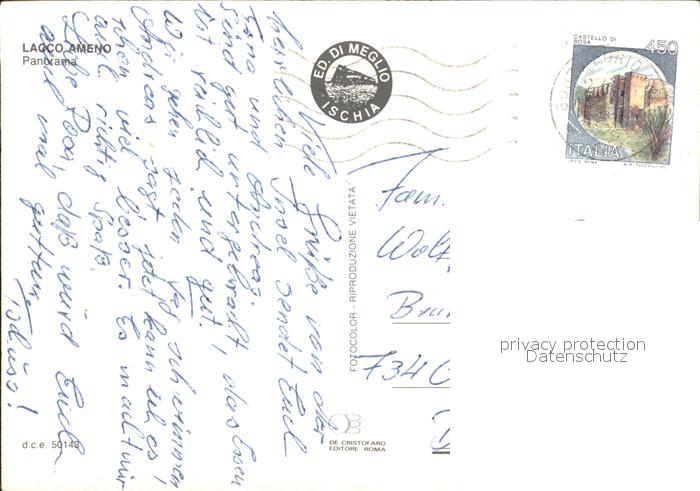 LACCO AMENO
Panorama
ED. DI MEGLIO
ISCHIA
CASTELLO DI
BOSA
450
ITALIA
Viele Grüße von der
herrlichen Insel sendet Euch
und Andreas.
Sind gut untergebracht, das Essen
ist reichl. und gut.
Wir gehen jeden Tag schwimmen
Andreas sagt jetzt kann ich es
schon viel besser. Es macht mir
auch richtig Spaß.
Liebe Rosi, daß würd Euch
auch mal guttun.
Tschüss!
FOTOCOLOR - RIPRODUZIONE VIETATA
Fam.
Wolf
734
privacy protection
Datenschutz
d.c.e. 50143
DE CRISTOFARO
EDITORE ROMA